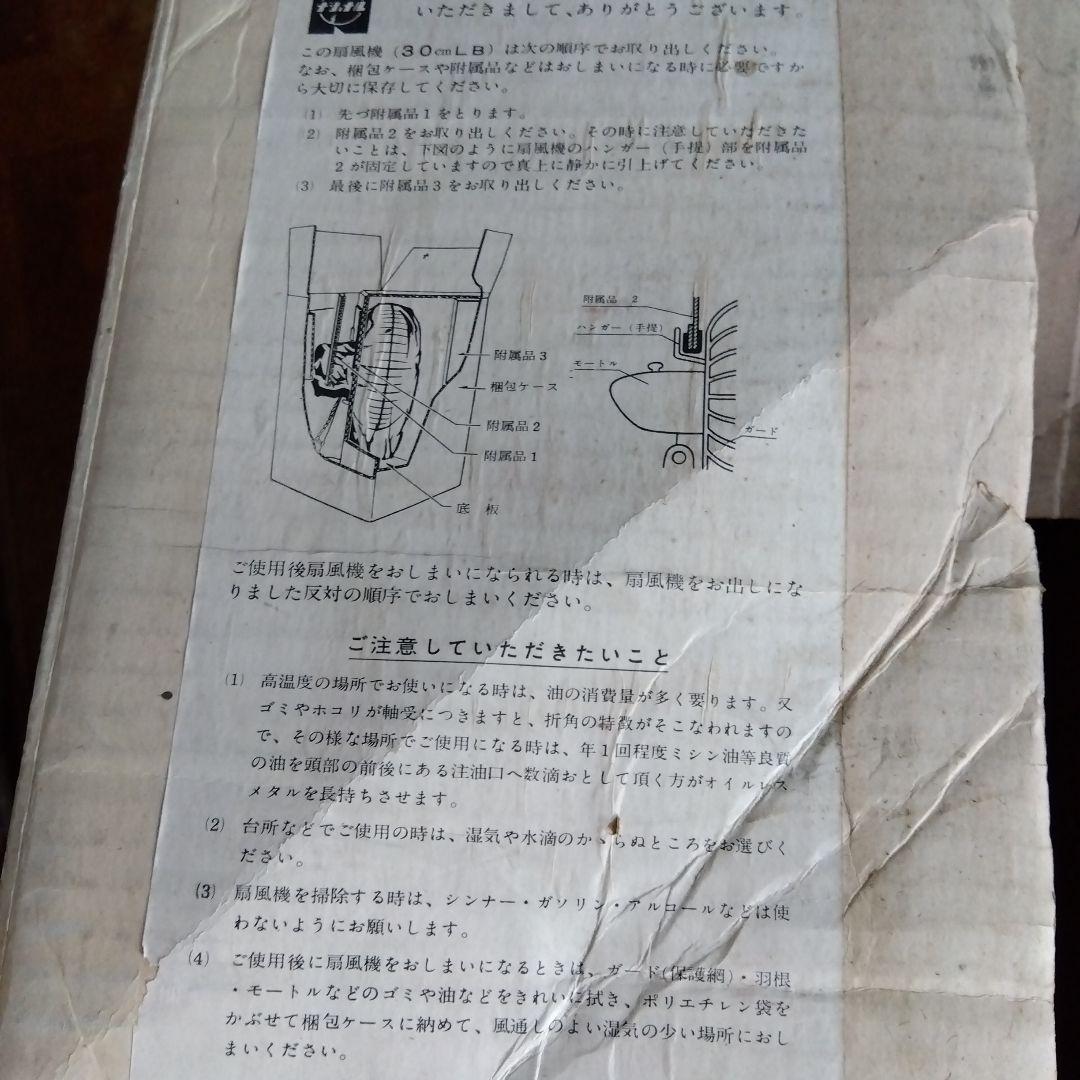 いただきまして、ありがとうございます。
この扇風機（30cmLB）は次の順序でお取り出しください。
なお、梱包ケースや附属品などはおしまいになる時に必要ですか
ら大切に保存してください。
(1) 先づ附属品1をとります。
2) 附属品2をお取り出しください。その時に注意していただきた
いことは、下図のように扇風機のハンガー（手提）部を附属品
2が固定していますので真上に静かに引上げてください。
(3) 最後に附属品3をお取り出しください。
附属品 2
ハンガー（手提）
モートル
ガード
附属品3
梱包ケース
附属品2
附属品1
底板
ご使用後扇風機をおしまいになられる時は、扇風機をお出しにな
りました反対の順序でおしまいください。
ご注意していただきたいこと
(1) 高温度の場所でお使いになる時は、油の消費量が多く要ります。又
ゴミやホコリが軸受につきますと、折角の特徴がそこなわれますの
で、その様な場所でご使用になる時は、年1回程度ミシン油等良質
の油を頭部の前後にある注油口へ数滴おとして頂く方がオイルレス
メタルを長持ちさせます。
(2) 台所などでご使用の時は、湿気や水滴のかゝらぬところをお選びく
ださい。
(3) 扇風機を掃除する時は、シンナー・ガソリン・アルコールなどは使
わないようにお願いします。
(4) ご使用後に扇風機をおしまいになるときは、ガード(保護網)・羽根
・モートルなどのゴミや油などをきれいに拭き、ポリエチレン袋を
かぶせて梱包ケースに納めて、風通しのよい湿気の少い場所におし
まいください。